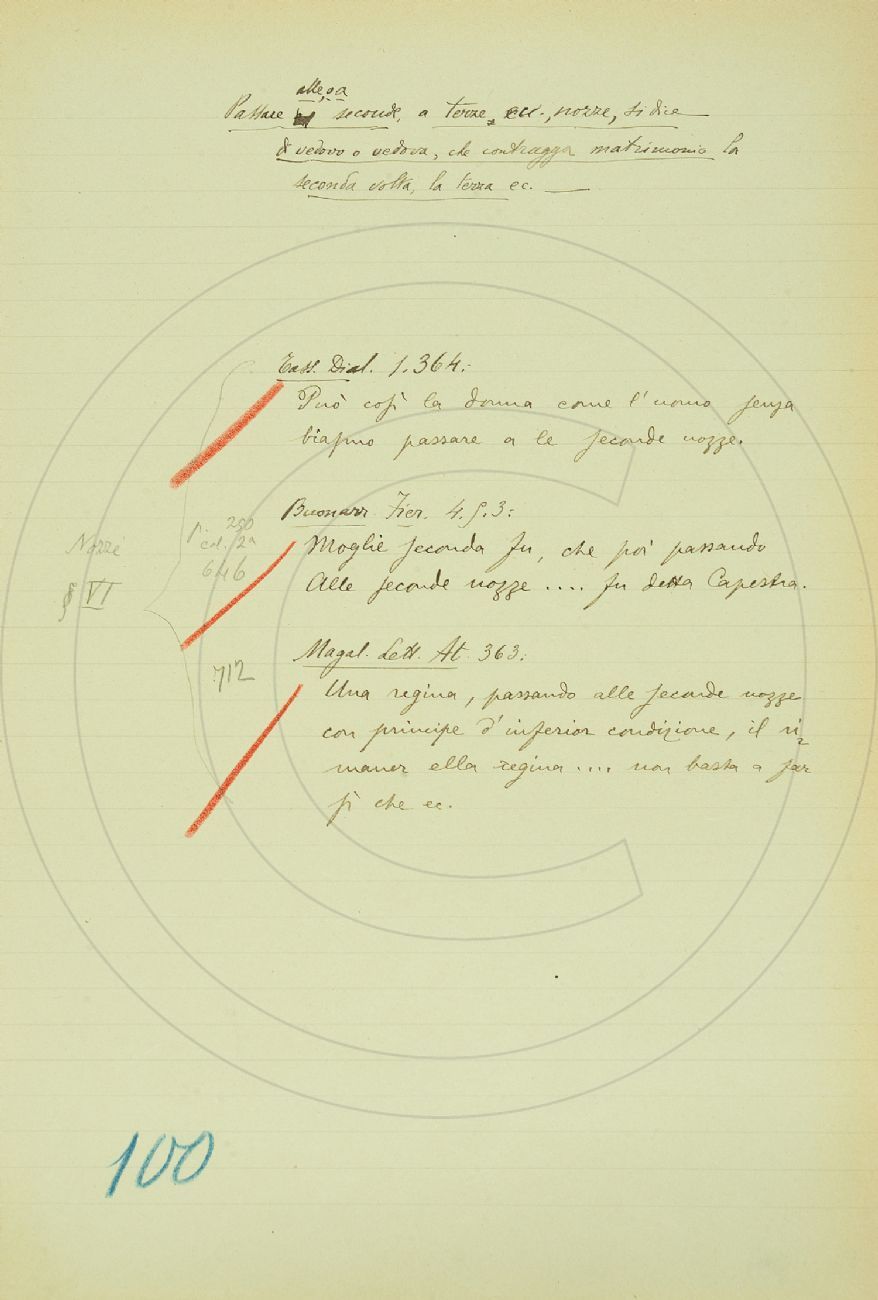 alle, o a
Passare seconde, a terze, ecc., nozze, si dice
di vedovo o vedova, che contragga matrimonio la
seconda volta, la terza ec.
Tass. Dial. 1. 364:
Può così la donna come l'uomo senza
biasmo passare a le seconde nozze.
Buonarr. Fier. 4. 5. 3:
Moglie seconda fu, che poi passando
Alle seconde nozze .... fu detta Capestra.
Nozze
§ VI
p. 250
col. 2a
646
712
Magal. Lett. At. 363:
Una regina, passando alle seconde nozze
con principe d'inferior condizione, il ri-
maner ella regina .... non basta a far
sì che ec.
100